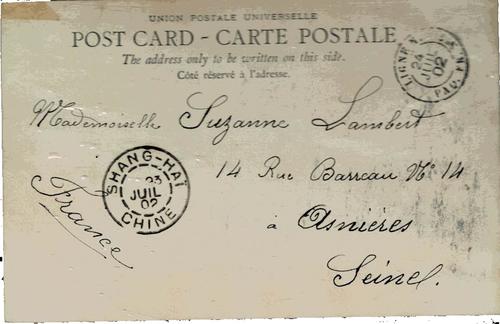 UNION POSTALE UNIVERSELLE
POST CARD - CARTE POSTALE
The address only to be written on this side.
Côté réservé à l'adresse.
LIGNE
24
JUIL
02
PAQ. FR.
Mademoiselle Suzanne Lambert
14 Rue Barreau No 14
à Asnières
Seine.
France
SHANG-HAÏ
23
JUIL
02
CHINE